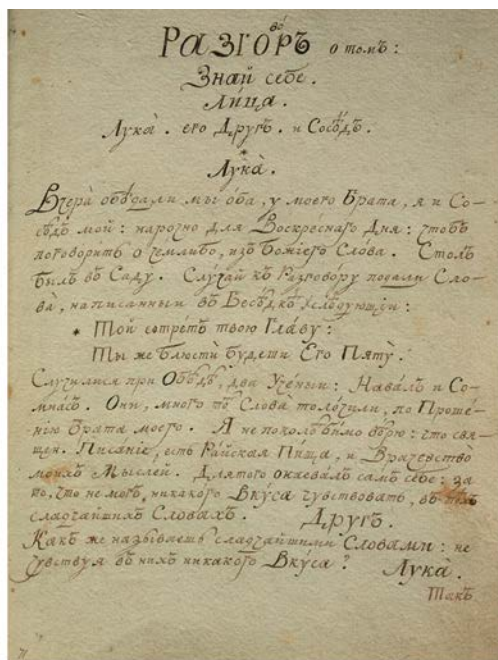 РАЗГОВОРЪ о томъ:
Знай себе.
Лица.
Лука. его Другъ. и Сосѣдъ.
*
Лука.
Вчера обѣдали мы оба, у моего Брата, я и Со-
сѣдъ мой: нарочно для Воскреснаго Дня: чтобъ
поговорить о чемлибо, изъ Божіего Слова. Столъ
былъ въ Саду. Случай къ Разговору подали Сло-
ва, написанныи въ Бесѣдкѣ слѣдующіи:
* Той сотретъ твою Главу:
Ты же блюсти будеши Его Пяту.
Случилися при Обѣдѣ, два Ученыи: Навалъ и Со-
мнасъ. Они, много тѣ Слова толочили, по Проше-
нію Брата моего. Я непоколѣбимо вѣрю: что свя-
щен. Писаніе, есть Райская Пища, и Врачевство
моихъ Мыслей. Длятого окаевалъ самъ себе: за
то, что не могъ, никакого Вкуса чувствовать, въ тѣхъ
сладчайшихъ Словахъ. Другъ.
Какъ же называешь сладчайшими Словами: не
чувствуя въ нихъ никакого Вкуса? Лука.
Такъ